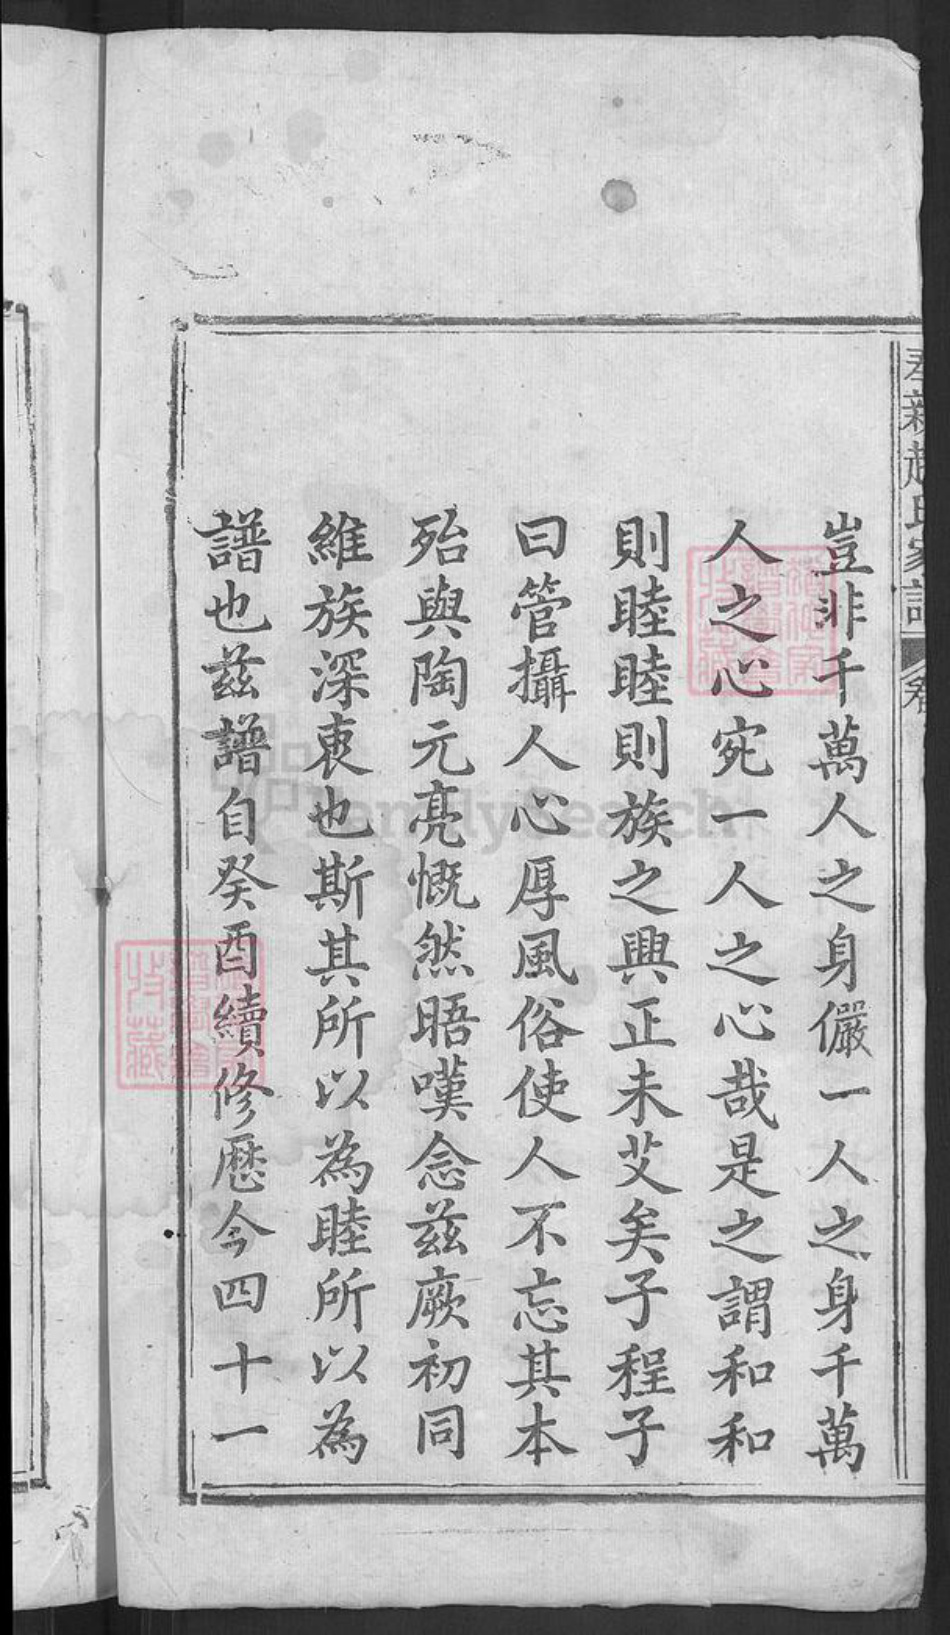 豈非千萬人之身儼一人之身千萬
人之心宛一人之心哉是之謂和和
則睦睦則族之興正未艾矣子程子
曰管攝人心厚風俗使人不忘其本
殆與陶元亮慨然晤嘆念茲厥初同
維族深衷也斯其所以為睦所以為
譜也茲譜自癸酉續修歷今四十一
奉新趙氏家譜
FamilySearch